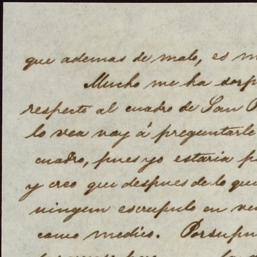 que ademas de malo, es m
Mucho me ha sorp
respecto al cuadro de San P
lo vea voy á preguntarle
cuadro, pues yo estaria p
y creo que despues de lo que
ningun escrupulo en ve
como medios. Por supu